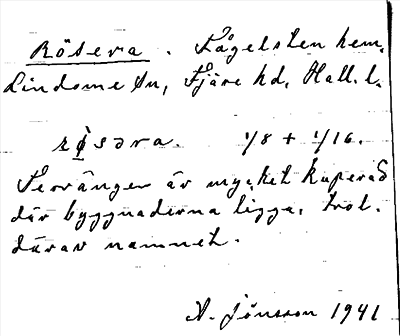 Rösera. Fågelsten hem.
Lindome sn, Fjäre hd, Hall. l.
røsəra. 1/8 + 1/16.
Terrängen är mycket kuperad
där byggnaderna ligga, trol.
därav namnet.
A. Jönsson 1941